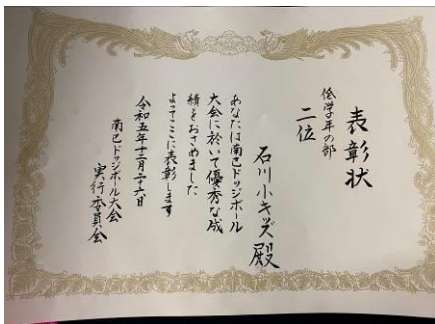 表彰状
低学年の部
二位
石川小キッズ殿
あなたは南己ドッジボール
大会に於いて優秀な成
績をおさめました
よってここに表彰します
令和五年三月二十六日
南己ドッジボール大会
実行委員会